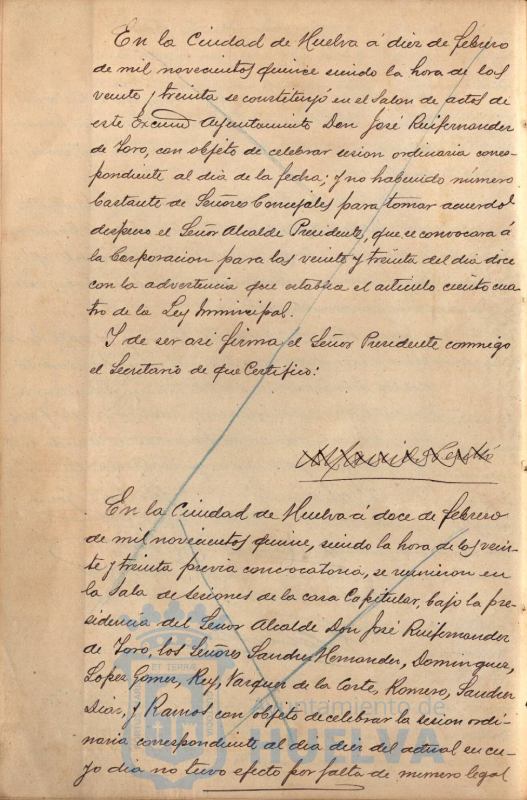 En la Ciudad de Huelva á diez de febrero
de mil novecientos quince siendo la hora de las
veinte y treinta se constituyó en el Salon de actos de
este Excmo Ayuntamiento Don José Ruifernandez
de Toro, con objeto de celebrar sesion ordinaria corres-
pondiente al dia de la fecha; y no habiendo número
bastante de Señores Concejales para tomar acuerdo
dispuso el Señor Alcalde Presidente, que se convocara á
la Corporacion para las veinte y treinta del dia doce
con la advertencia que establece el articulo ciento cua-
tro de la Ley Municipal.
Y de ser asi firma el Señor Presidente conmigo
el Secretario de que Certifico:
En la Ciudad de Huelva á doce de febrero
de mil novecientos quince, siendo la hora de las vein-
te y treinta previa convocatoria, se reunieron en
la Sala de Sesiones de la casa Capitular, bajo la pre-
sidencia del Señor Alcalde Don José Ruifernandez
de Toro, los Señores Sanchez Hernandez, Dominguez,
Lopez Gomez, Rey, Vazquez de la Corte, Romero, Sanchez
Diaz, y Ramos con objeto de celebrar la sesion ordi-
naria correspondiente al dia diez del actual en cu-
yo dia no tuvo efecto por falta de numero legal
Ayuntamiento de
HUELVA